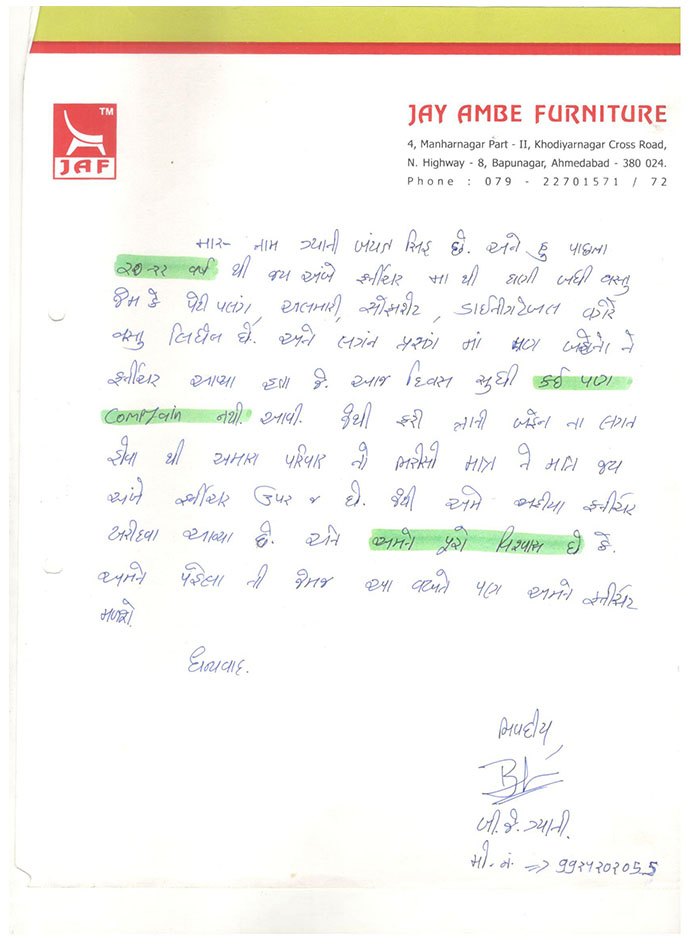 TM
JAF
JAY AMBE FURNITURE
4, Manharnagar Part - II, Khodiyarnagar Cross Road,
N. Highway - 8, Bapunagar, Ahmedabad - 380 024.
Phone : 079 - 22701571 / 72
મારૂ નામ જ્ઞાની સિંહ છે. અને હુ પાછલા
૨૦-૨૨ વર્ષ થી જય અંબે ફર્નીચર મા થી ઘણી બધી વસ્તુ
જેમ કે પેટી પલંગ, અલમારી, સોફાસેટ, ડાઈનીંગટેબલ વગેરે
વસ્તુ લિધેલ છે. અને લગ્ન પ્રસંગ માં પણ બહેનો ને
ફર્નીચર આપ્યા હતા જે. આજ દિવસ સુધી કઈ પણ
Complain નથી. આવી. જેથી ફરી નાની બહેન ના લગ્ન
હોવા થી અમારા પરિવાર નો ભરોસો માત્ર ને માત્ર જય
અંબે ફર્નીચર ઉપર જ છે. જેથી અમે અહીયા ફર્નીચર
ખરીદવા આવ્યા છે. અને અમને પુરો વિશ્વાસ છે કે.
અમને પેહેલા ની જેમજ આ વખતે પણ અમને ફર્નીચર
મળશે.
ધન્યવાદ.
ભવદીય
બી.જે. જ્ઞાની.
મો.નં. => ૯૯૨૫૨૦૨૦૫૬